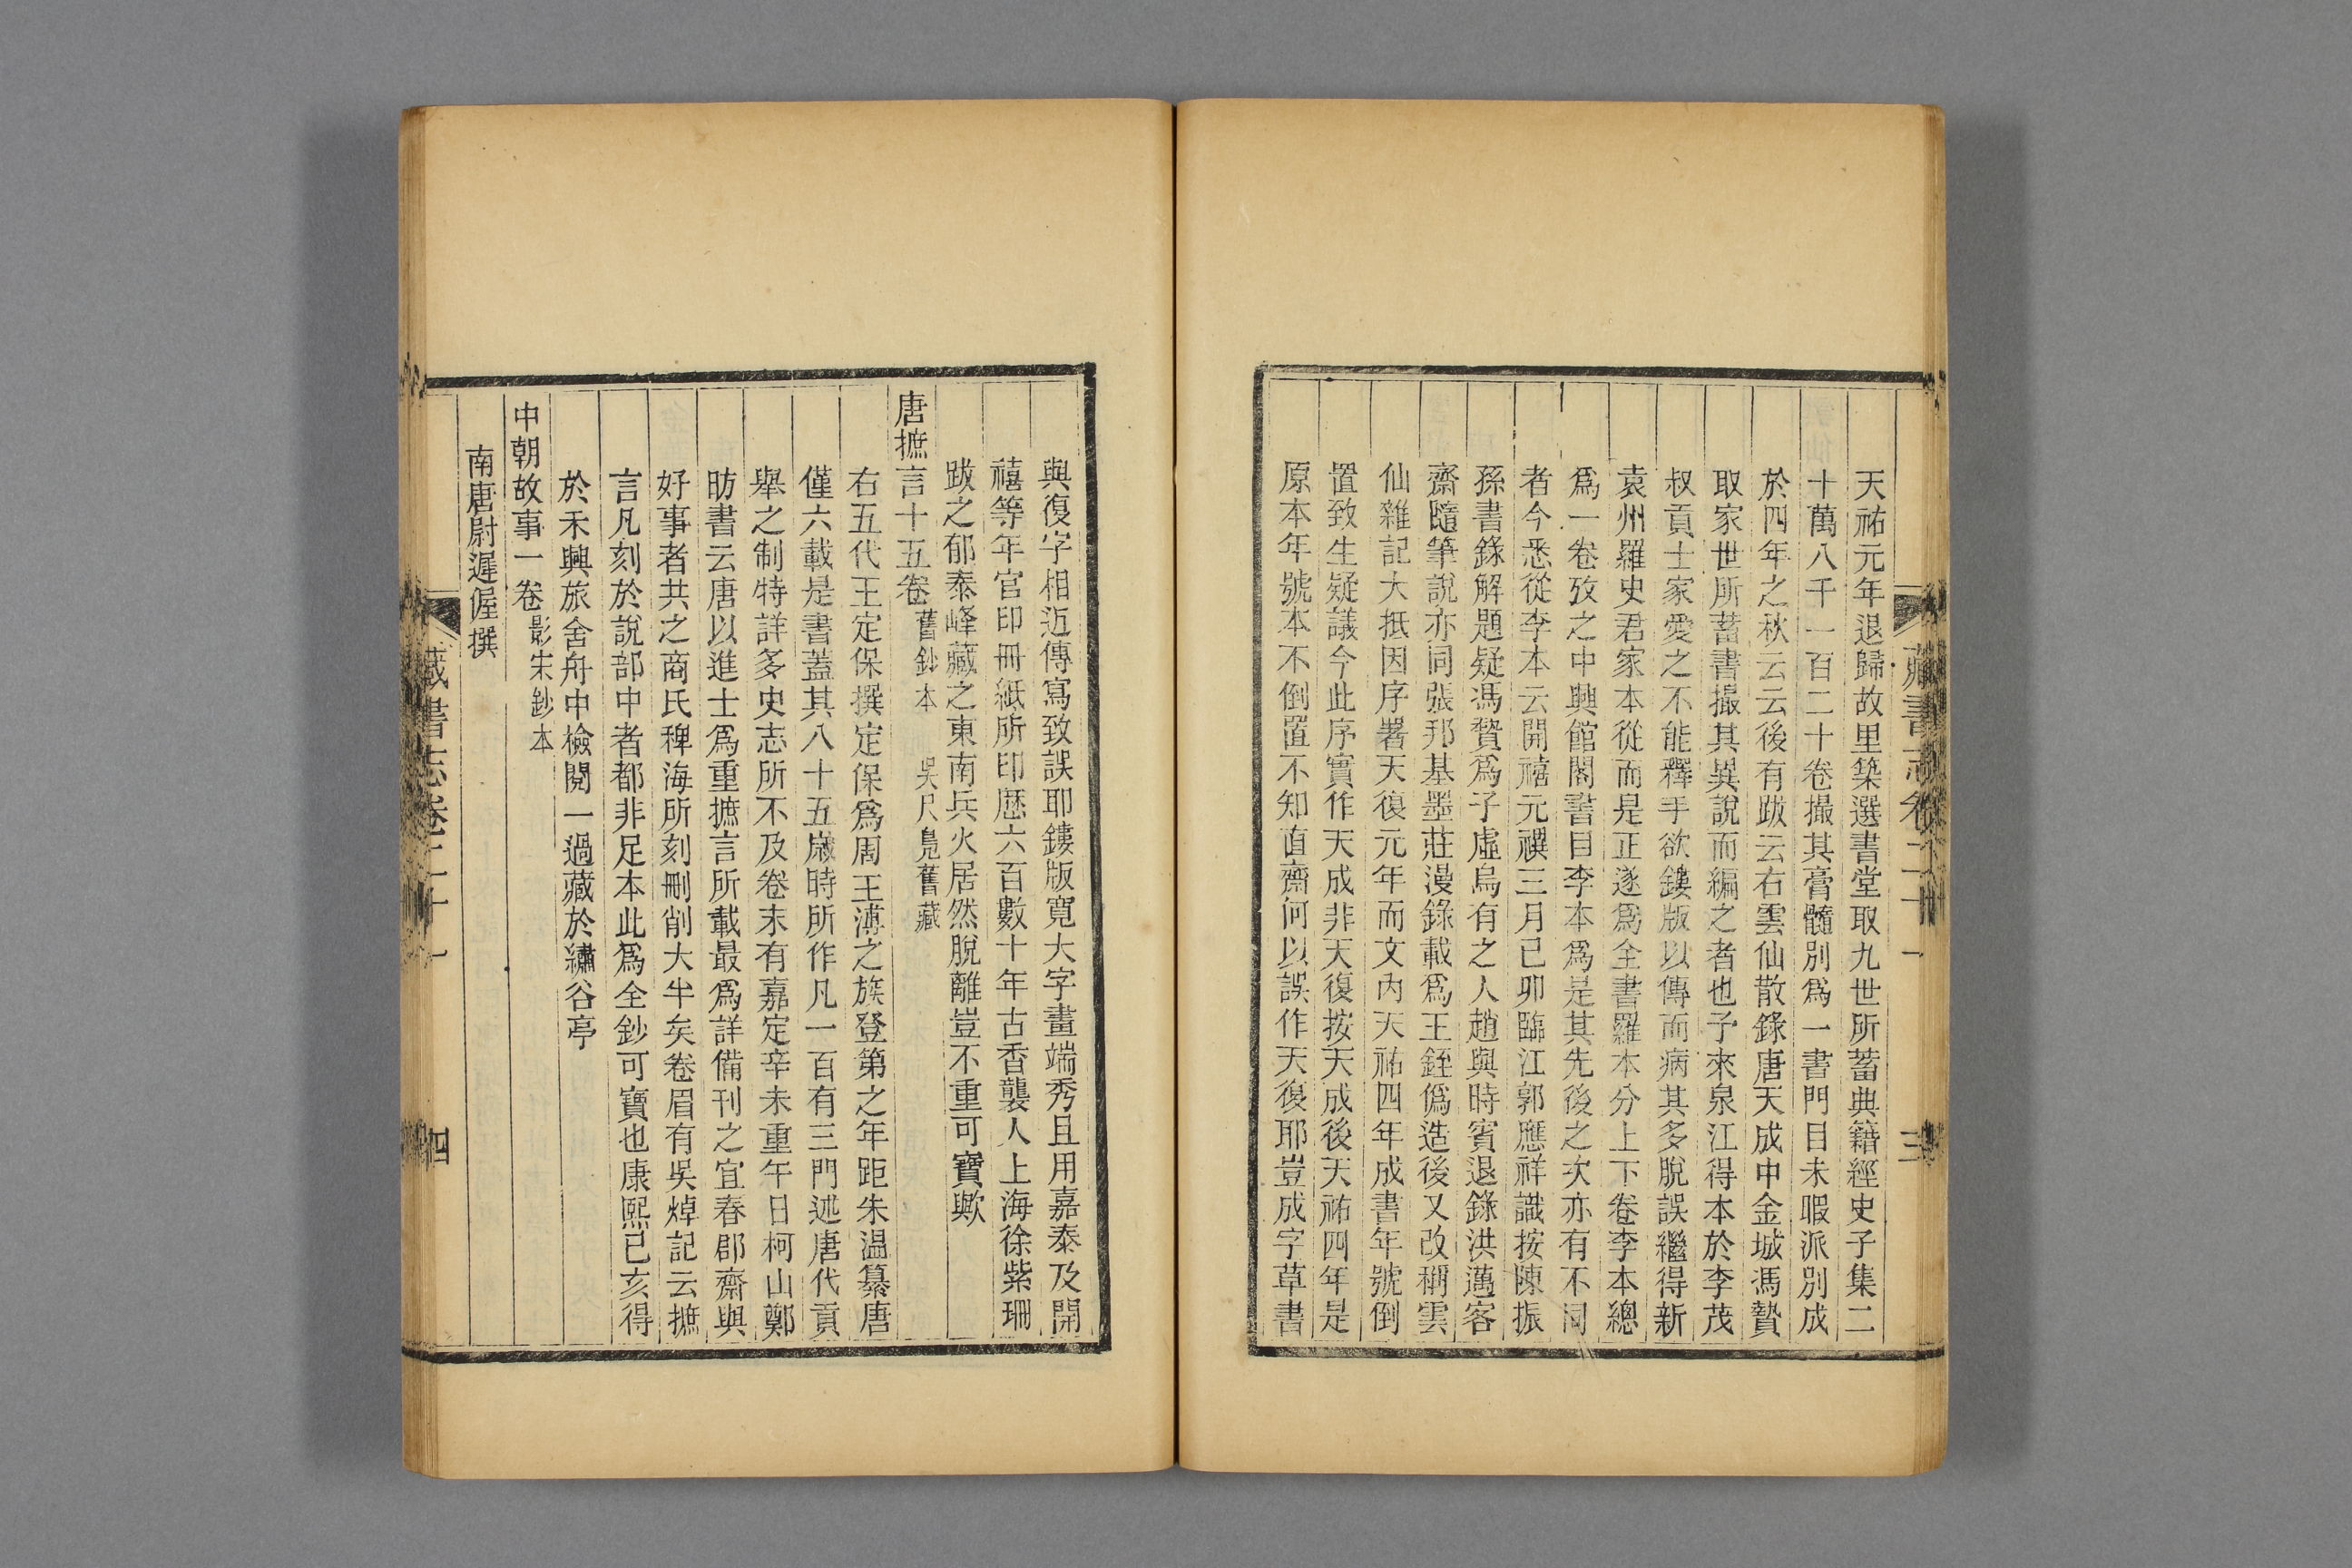 藏書志卷二十一
三
天祐元年退歸故里築選書堂取九世所蓄典籍經史子集二
十萬八千一百二十卷撮其膏髓別爲一書門目未暇派別成
於四年之秋云云後有跋云右雲仙散錄唐天成中金城馮贄
取家世所蓄書撮其異說而編之者也予來泉江得本於李茂
叔貢士家愛之不能釋手欲鏤版以傳而病其多脫誤繼得新
袁州羅史君家本從而是正遂爲全書羅本分上下卷李本總
爲一卷攷之中興館閣書目李本爲是其先後之次亦有不同
者今悉從李本云開禧元禩三月已卯臨江郭應祥識按陳振
孫書錄解題疑馮贄爲子虛烏有之人趙與時賓退錄洪邁容
齋隨筆說亦同張邦基墨莊漫錄載爲王銍僞造後又改稱雲
仙雜記大抵因序署天復元年而文內天祐四年成書年號倒
置致生疑議今此序實作天成非天復按天成後天祐四年是
原本年號本不倒置不知直齋何以誤作天復耶豈成字草書
與復字相近傳寫致誤耶鏤版寬大字畫端秀且用嘉泰及開
禧等年官印冊紙所印歷六百數十年古香襲人上海徐紫珊
跋之郁泰峰藏之東南兵火居然脫離豈不重可寶歟
唐摭言十五卷舊鈔本　吳尺鳧舊藏
右五代王定保撰定保爲周王溥之族登第之年距朱温纂唐
僅六載是書蓋其八十五歲時所作凡一百有三門述唐代貢
舉之制特詳多史志所不及卷末有嘉定辛未重午日柯山鄭
昉書云唐以進士爲重摭言所載最爲詳備刊之宜春郡齋與
好事者共之商氏稗海所刻刪削大半矣卷眉有吳焯記云摭
言凡刻於說部中者都非足本此爲全鈔可寶也康熙己亥得
於禾興旅舍舟中檢閱一過藏於繡谷亭
中朝故事一卷影宋鈔本
南唐尉遲偓撰
藏書志卷二十一
四